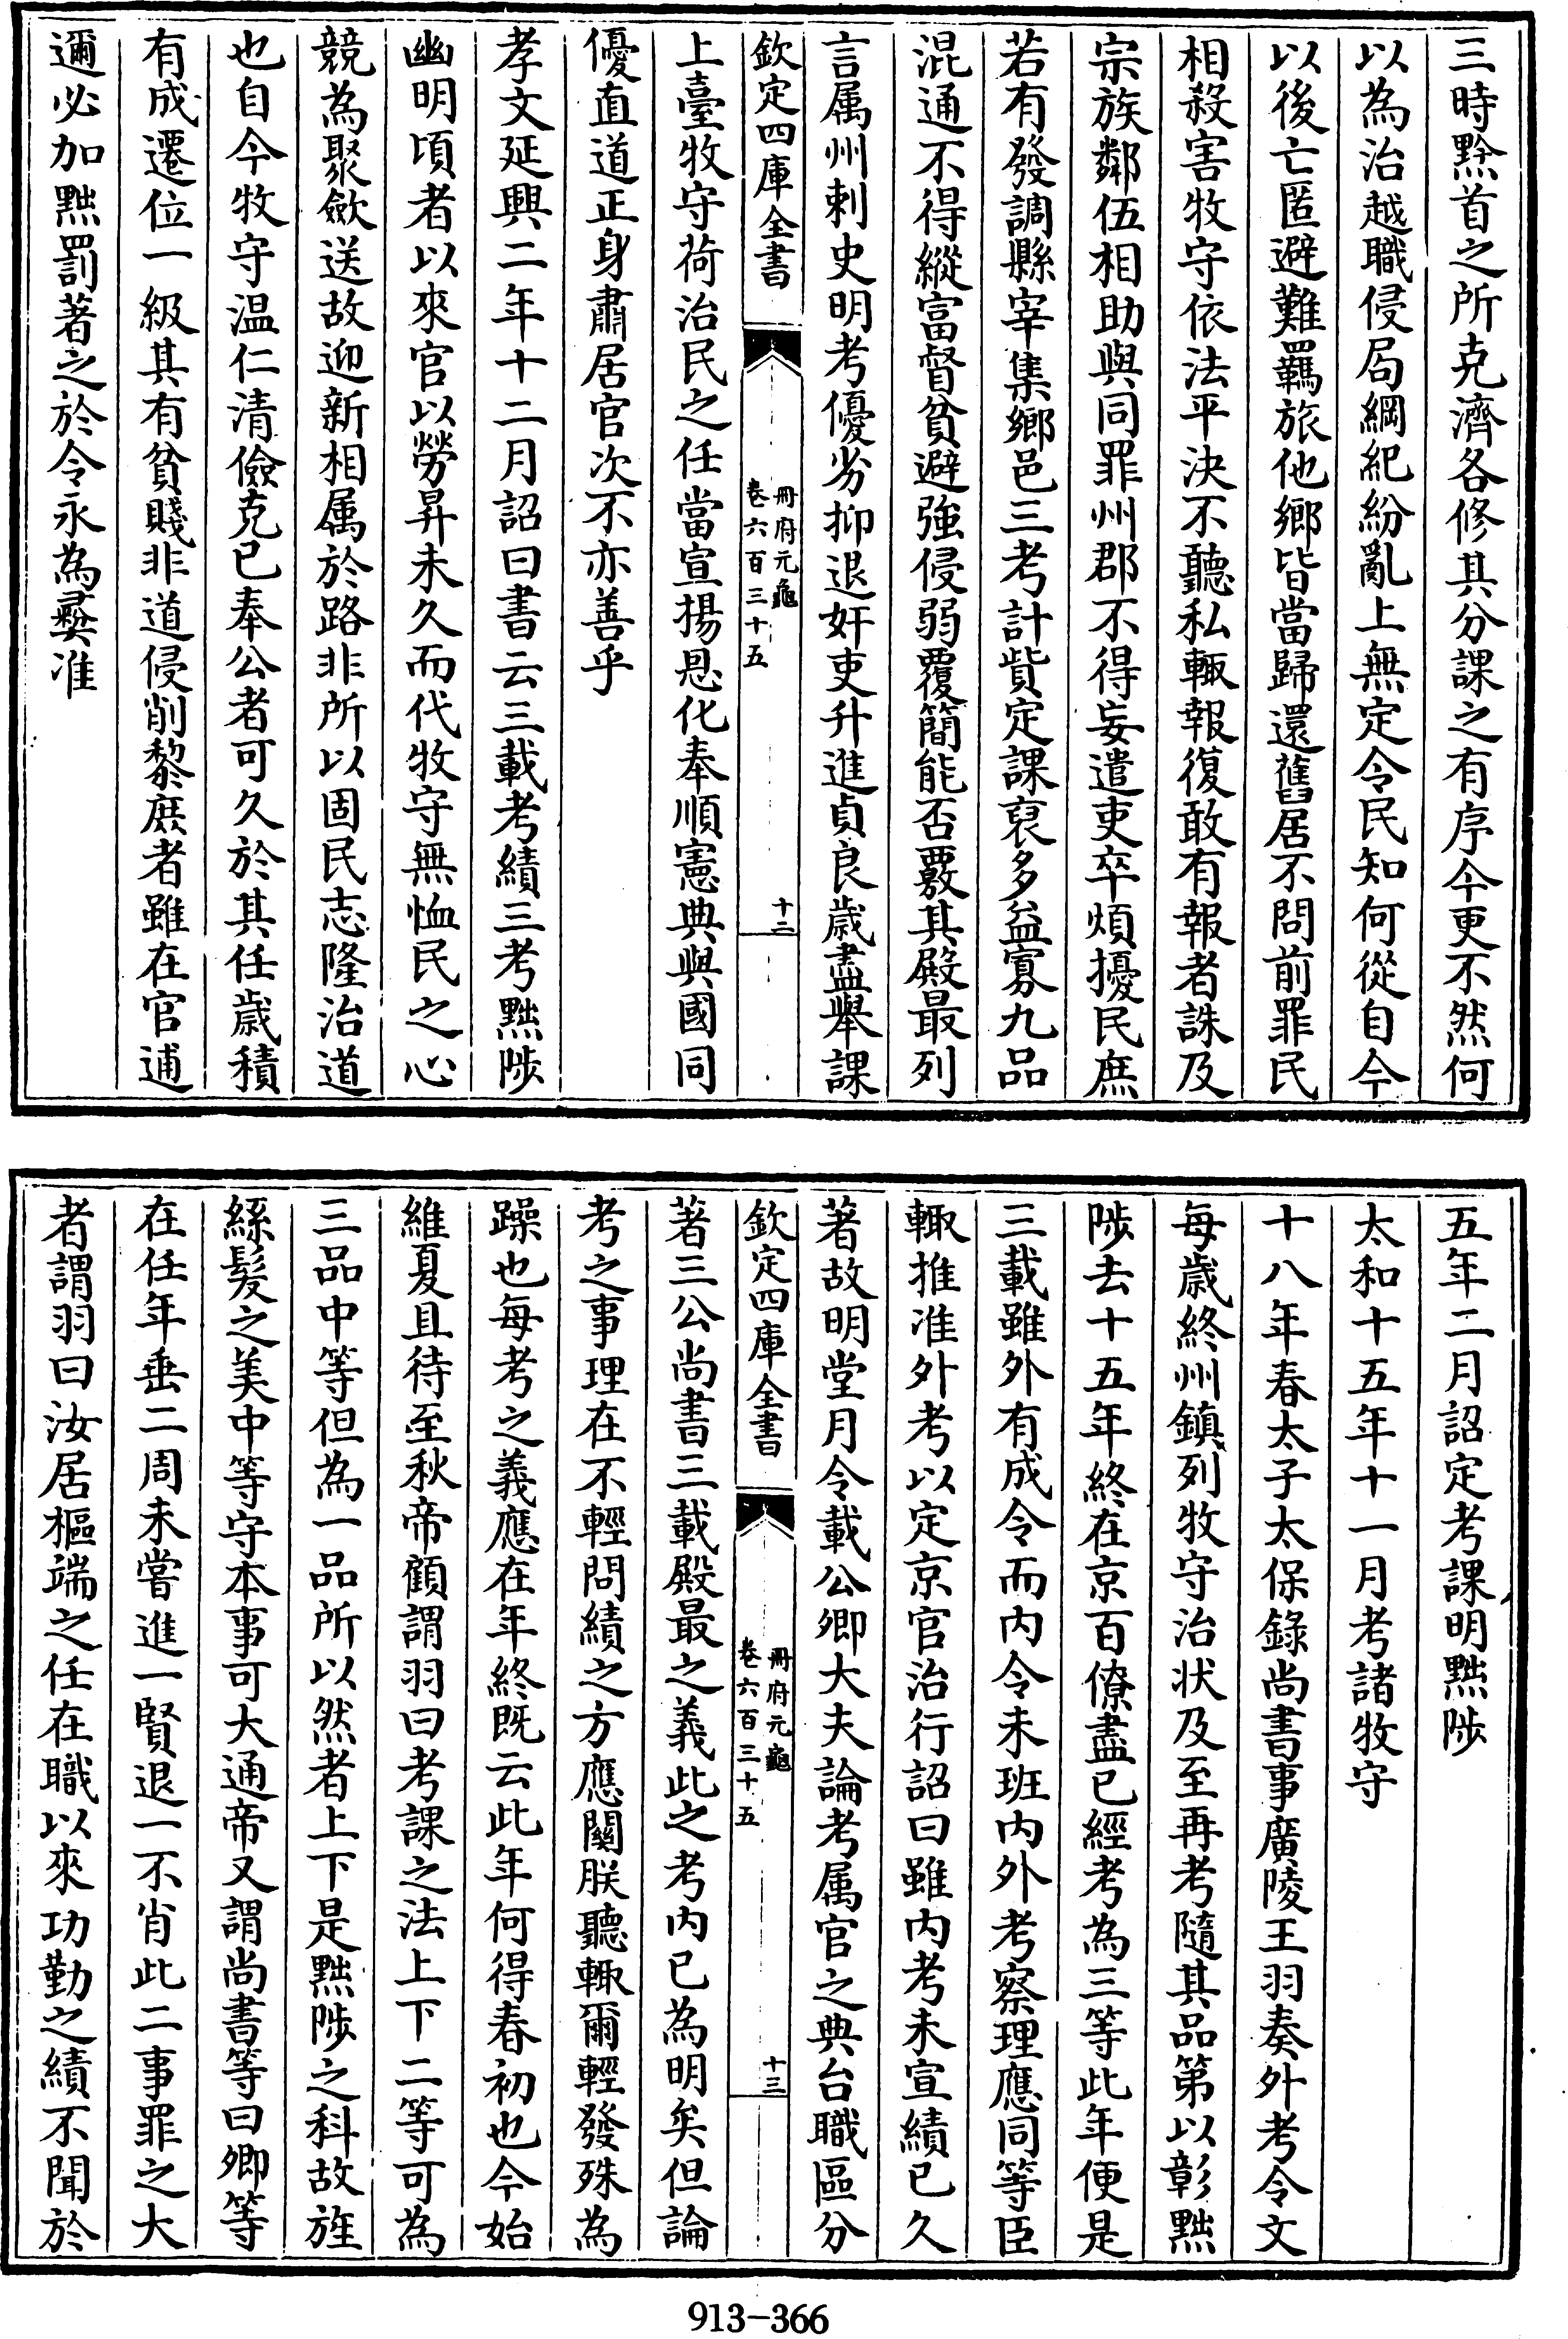 三時黔首之所克濟各修其分課之有序今更不然何
以為治越職侵局綱紀紛亂上無定令民知何從自今
以後亡匿避難羈旅他鄉皆當歸還舊居不問前罪民
相殺害牧守依法平決不聽私輙報復敢有報者誅及
宗族鄰伍相助與同罪州郡不得妄遣吏卒煩擾民庶
若有發調縣宰集鄉邑三考計貲定課裒多益寡九品
混通不得縱富督貧避強侵弱覆簡能否覈其殿最列
言属州刺史明考優劣抑退奸吏升進貞良歲盡舉課
欽定四庫全書
冊府元龜
卷六百三十五
十二
上臺牧守荷治民之任當宣揚恩化奉順憲典與國同
優直道正身肅居官次不亦善乎
孝文延興二年十二月詔曰書云三載考績三考黜陟
幽明頃者以來官以勞昇未久而代牧守無恤民之心
競為聚歛送故迎新相属於路非所以固民志隆治道
也自今牧守温仁清儉克已奉公者可久於其任歲積
有成遷位一級其有貧賤非道侵削黎庶者雖在官逋
邇必加黜罰著之於令永為彛准
五年二月詔定考課明黜陟
太和十五年十一月考諸牧守
十八年春太子太保錄尚書事廣陵王羽奏外考令文
每歲終州鎮列牧守治状及至再考隨其品第以彰黜
陟去十五年終在京百僚盡已經考為三等此年便是
三載雖外有成令而内令未班内外考察理應同等臣
輙推准外考以定京官治行詔曰雖内考未宣績已久
著故明堂月令載公卿大夫論考属官之典台職區分
欽定四庫全書
冊府元龜
卷六百三十五
十三
著三公尚書三載殿最之義此之考内已為明矣但論
考之事理在不輕問績之方應關朕聽輙爾輕發殊為
躁也每考之義應在年終既云此年何得春初也今始
維夏且待至秋帝顧謂羽曰考課之法上下二等可為
三品中等但為一品所以然者上下是黜陟之科故旌
絲髪之美中等守本事可大通帝又謂尚書等曰卿等
在任年垂二周未嘗進一賢退一不肖此二事罪之大
者謂羽曰汝居樞端之任在職以來功勤之績不聞於
913-366